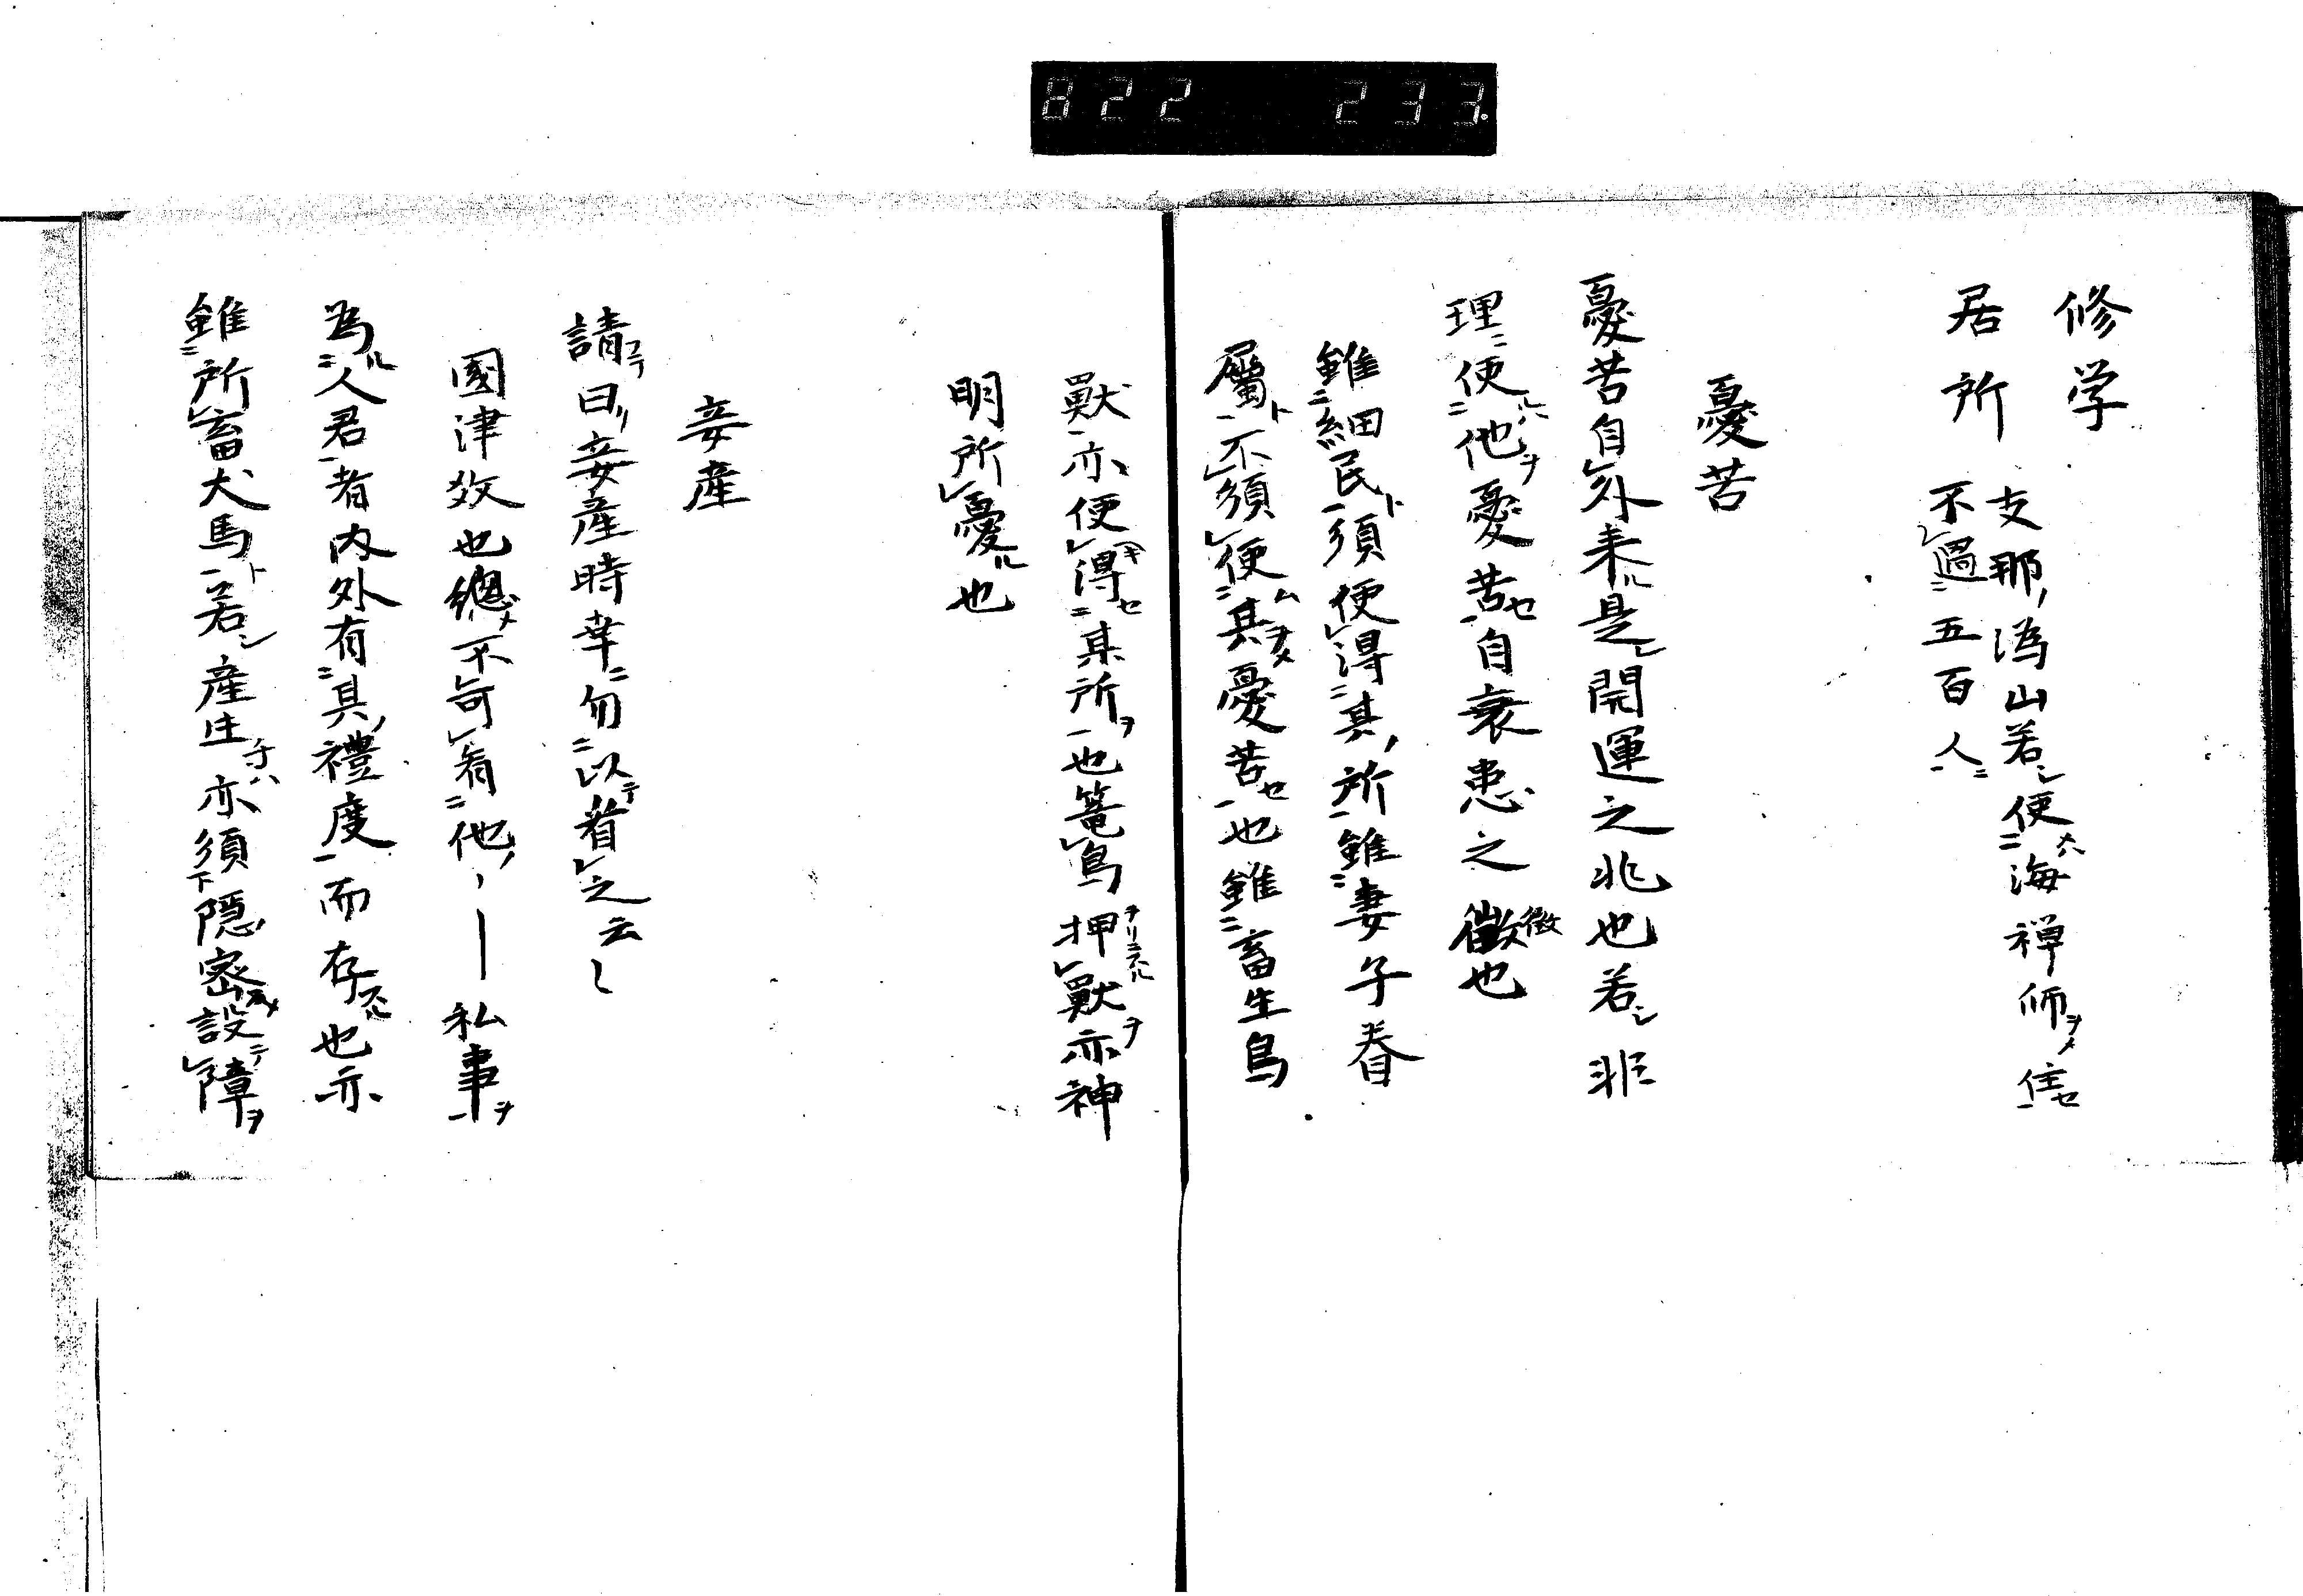 822 233.
修学
居所 支那ノ潙山若シ使ハ二海禅師ヲメ住セ一
不レ過二五百人ニ一
憂苦
憂苦自レ外来ル是レ開運之兆也若シ非
理ニ使ルハ二他ヲ憂苦セ一自衰患之徴也
雖二細民ト一須使レ得二其ノ所一雖二妻子眷
屬ト一不レ須レ使ム二其ヲメ憂苦セ一也雖二畜生鳥
獣一亦便レ得セ二其所ヲ一也篭レ鳥押レ獣ヲ亦神
明所レ憂ル也
妾産
請テ曰ク妾産時幸ニ勿二以テ着レ之云々
國津效也總メ不レ可レ看二他ノ私事ヲ一
為ル二人君一者内外有二其ノ禮度一而存スル也亦
雖二所レ畜犬馬ト一若シ産生亦須下隠密設テレ障ヲ